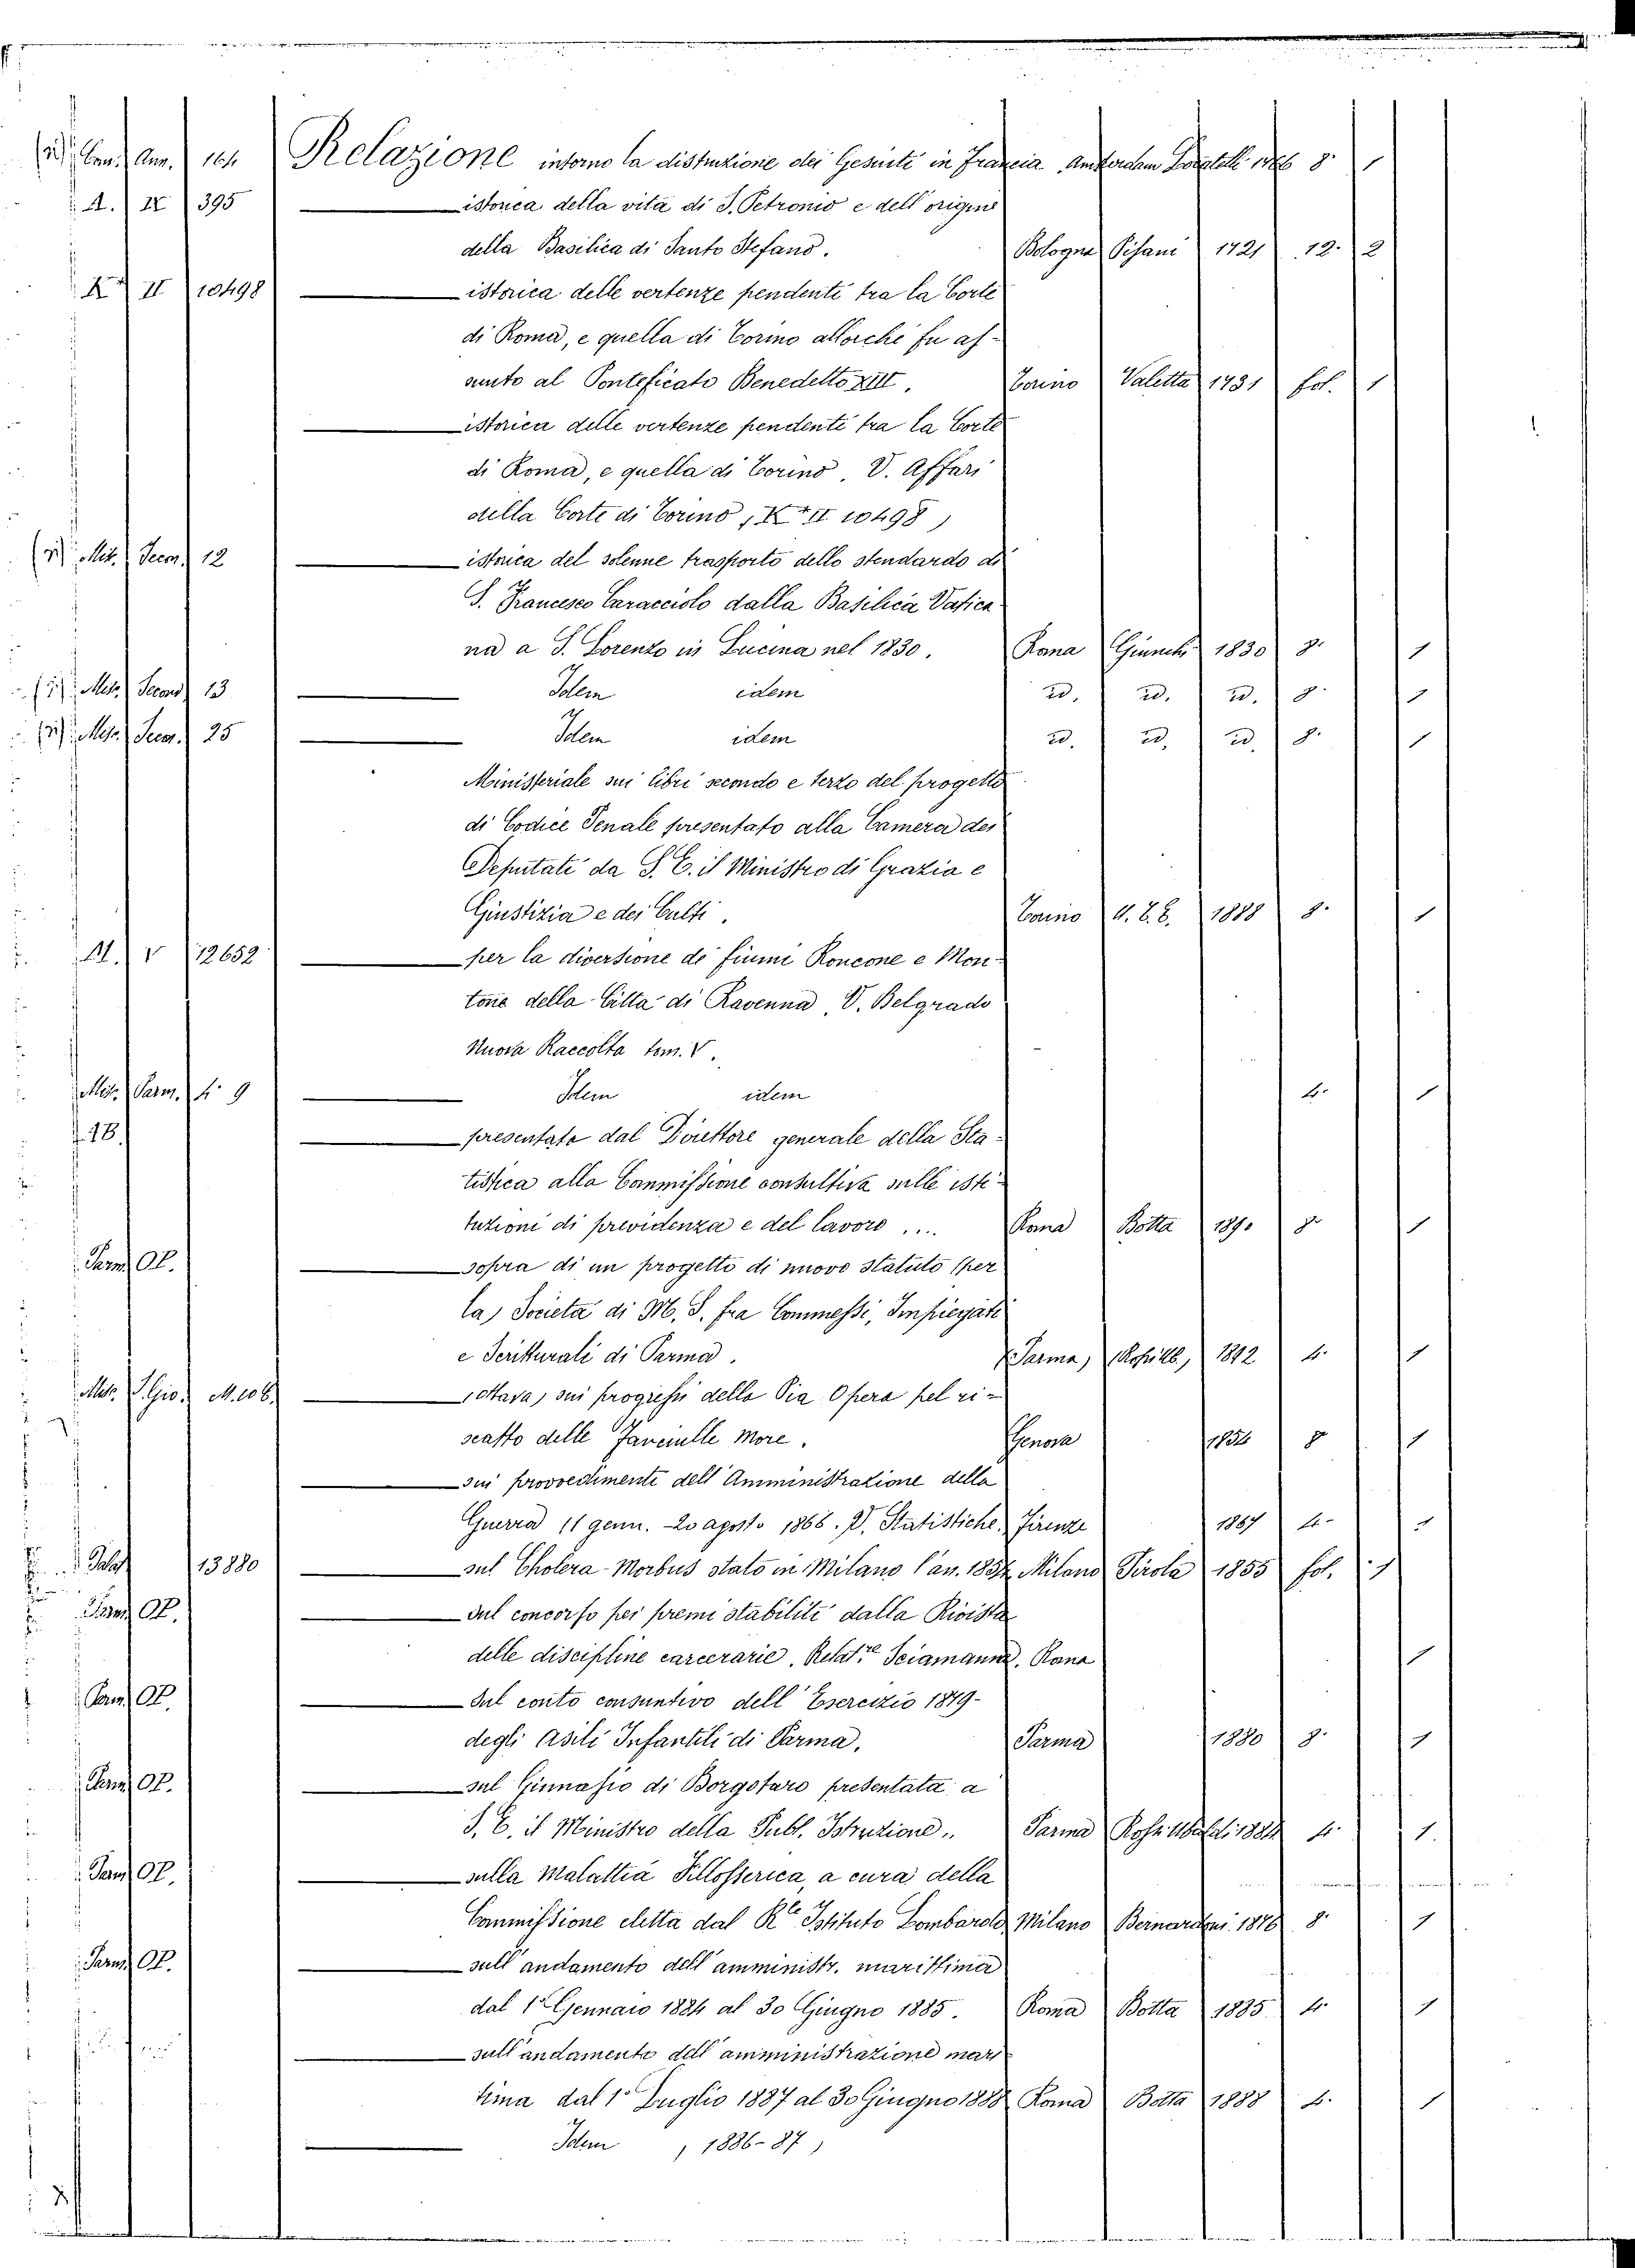 Relazione intorno la distruzione dei Gesuiti in Francia Amsterdam 8° 1
A. IX 395 istorica della vita di S. Petronio e dell'origine
della Basilica di Santo Stefano. Bologna Pisani 1721 12. 2
K II 10498 istorica delle vertenze pendenti tra la Corte
di Roma, e quella di Torino allorchè fu as-
sunto al Ponteficato Benedetto XIII. Torino Valetta 1731 fol. 1
istorica delle vertenze pendenti tra la Corte
di Roma, e quella di Torino, V. Affari
della Corte di Torino, (K II 10498)
Mis. Secon. 12 istorica del solenne trasporto dello stendardo di
S. Francesco Caracciolo dalla Basilica Vatica
na a S. Lorenzo in Lucina nel 1830. Roma 1830 8. 1
Second. 13 Idem idem id. id. id. 8. 1
Secon. 25 Idem idem id. id. id. 8. 1
Ministeriale sui libri secondo e terzo del progetto
di Codice Penale presentato alla Camera dei
Deputati da S. E. il Ministro di Grazia e
Giustizia e dei Culti. Torino U.T.E. 1888 8. 1
M. V 12652 per la diversione de fiumi Roncone e Mon-
tone della Città di Ravenna, V. Belgrado
Nuova Raccolta tom. V.
Mis. Parm. 4° 9 Idem idem 4. 1
f. 18. presentata dal Direttore generale della Sta-
tistica alla Commissione consultiva sulle isti-
tuzioni di previdenza e del lavoro .... Roma Botta 1890 8° 1
Parm. OP. sopra di un progetto di nuovo statuto (per
la) Società di M. S. fra Commessi, Impiegati
e Scritturali di Parma. (Parma, 1892 4. 1
Mis. S. Gio. M. 106. (ottava) sui progressi della Pia Opera pel ri-
scatto delle Fanciulle More. Genova 1854 8° 1
sui provvedimenti dell'Amministrazione della
Guerra (1 genn. - 20 agosto 1866. V. Statistiche. Firenze 1867 4. 1
Palat 13880 sul Cholera-Morbus stato in Milano l'an. 1854 Milano Pirola 1855 fol. 1
Parm. OP. sul concorso pei premi stabiliti dalla Rivista
delle discipline carcerarie. Relat.re Sciamanna. Roma 1
Parm. OP. Sul conto consuntivo dell'Esercizio 1879-
degli Asili Infantili di Parma. Parma 1880 8. 1
Parm. OP. sul Ginnasio di Borgotaro presentata a
S. E. il Ministro della Pubb. Istruzione.. Parma 1884 4. 1.
Parm. OP. sulla Malattia Fillosserica, a cura della
Commissione eletta dal R.le Istituto Lombardo Milano Bernardoni 1876 8. 1
Parm. OP. sull'andamento dell'amministr. marittima
dal 1° Gennaio 1884 al 30 Giugno 1885. Roma Botta 1885 4. 1
sull'andamento dell'amministrazione mari
tima dal 1° Luglio 1887 al 30 Giugno 1888 Roma Botta 1888 4. 1
Idem (1886-87)